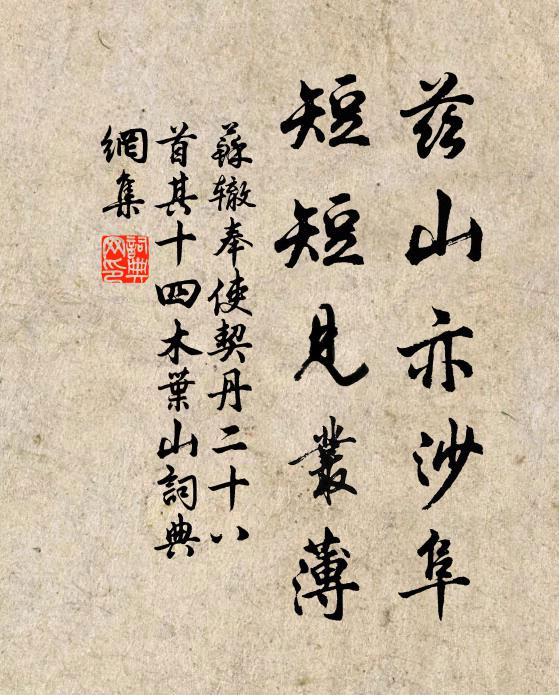 兹山亦沙阜
短短見叢薄
蘇辙奉使契丹二十八
首其十四木葉山詞典
網集
詞典
网印